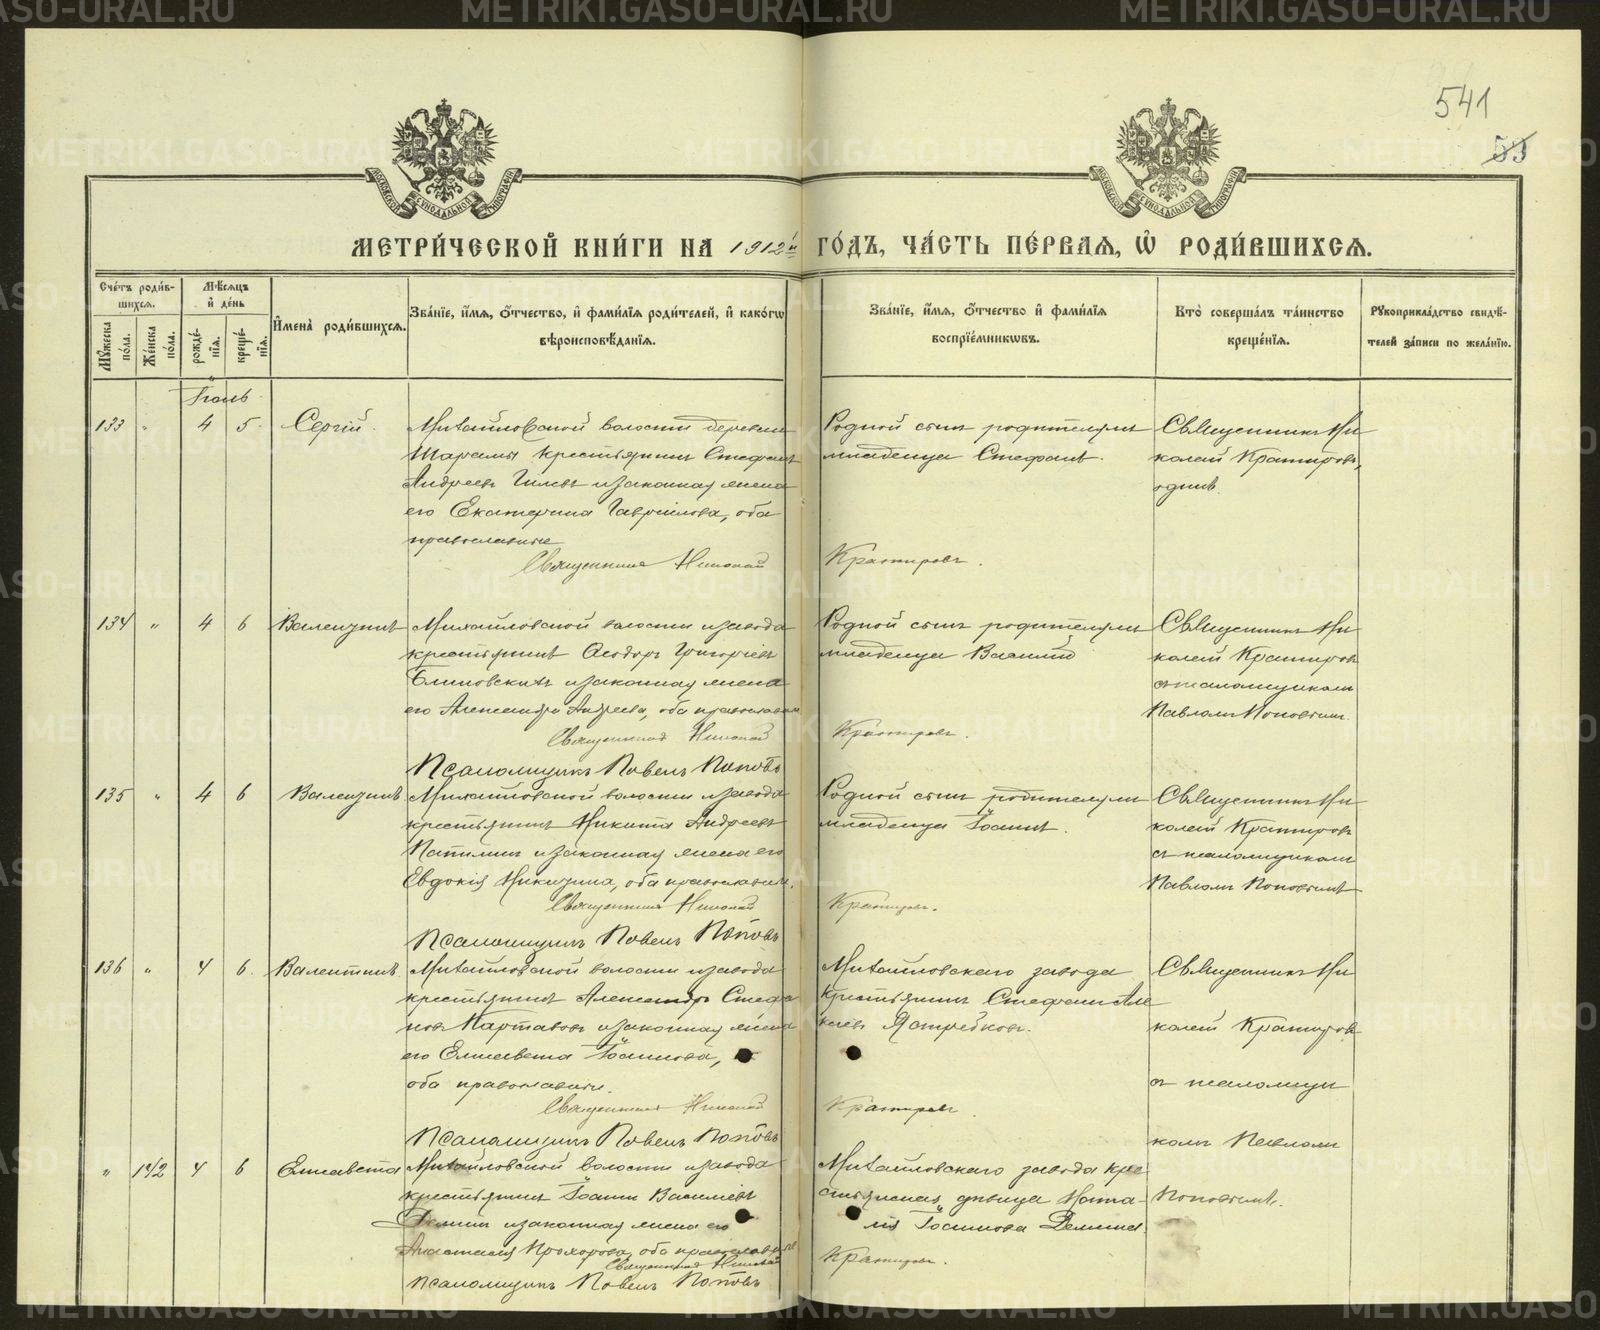 541
53
МЕТРИ́ЧЕСКОЙ КНИ́ГИ НА 1912й ГО́ДЪ, ЧА́СТЬ ПЕ́РВАЯ, Ѡ РОДИ́ВШИХСЯ.
Сче́тъ роди́в-
шихся.
Мѣ́сяцъ
и҆ де́нь
Му́жеска по́ла.
Же́нска по́ла.
рожде́-
нїя.
креще́-
нїя.
И҆мена̀ роди́вшихся.
Зва́нїе, и҆́мя, ѻ҆́тчество, и҆ фами́лїя роди́телей, и҆ како́гѡ
вѣроисповѣ́данїя.
Зва́нїе, и҆́мя, ѻ҆́тчество и҆ фами́лїя
воспрїе́мникѡвъ.
Кто̀ соверша́лъ та́инство
креще́нїя.
Рꙋкоприкла́дство свидѣ́-
телей за́писи по жела́нїю.
Іюль
133 " 4 5 Сергій.
Михайловской волости деревни
Шарамы крестьянинъ Стефанъ
Андреевъ Гилевъ и законная жена
его Екатерина Гавріилова, оба
православные
Священникъ Николай
Родной сынъ родителей
младенца Стефанъ.
Кратировъ.
Священникъ Ни
колай Кратировъ,
одинъ.
134 " 4 6 Валентинъ
Михайловской волости и завода
крестьянинъ Ѳеодоръ Григорьевъ
Блиновскихъ и законная жена
его Александра Андреева, оба православн
Священникъ Николай
Псаломщикъ Павелъ Поповъ
Родной сынъ родителей
младенца Василій
Кратировъ.
Священникъ Ни
колай Кратировъ
съ псаломщикомъ
Павломъ Поповымъ.
135 " 4 6 Валентинъ
Михайловской волости и завода
крестьянинъ Никита Андреевъ
и законная жена его
Евдокія Никитина, оба православн.
Священникъ Николай
Псаломщикъ Павелъ Поповъ
Родной сынъ родителей
младенца Іоаннъ.
Кратировъ.
Священникъ Ни
колай Кратировъ
съ псаломщикомъ
Павломъ Поповымъ
136 " 4 6. Валентинъ.
Михайловской волости и завода
крестьянинъ Александръ Стефа
новъ Картавовъ и законная жена
его Елисавета Іоаннова,
оба православные.
Священникъ Николай
Псаломщикъ Павелъ Поповъ
Михайловскаго завода
крестьянинъ Стефанъ Але
ксѣевъ Ястребковъ.
Кратировъ.
Священникъ Ни
колай Кратировъ
съ псаломщи
комъ Павломъ
Поповымъ.
" 142 4 6 Елисавета
Михайловской волости и завода
крестьянинъ Іоаннъ Васильевъ
Деминъ и законная жена его
Анастасія Прохорова, оба православные
Священникъ Николай
Псаломщикъ Павелъ Поповъ
Михайловскаго завода кре
стьянская дѣвица Ната-
лія Іоаннова Демина.
Кратировъ.
МОСКОВСКОЙ СѴНОДАЛЬНОЙ ТИПОГРАФІИ
МОСКОВСКОЙ СѴНОДАЛЬНОЙ ТИПОГРАФІИ
METRIKI.GASO-URAL.RU